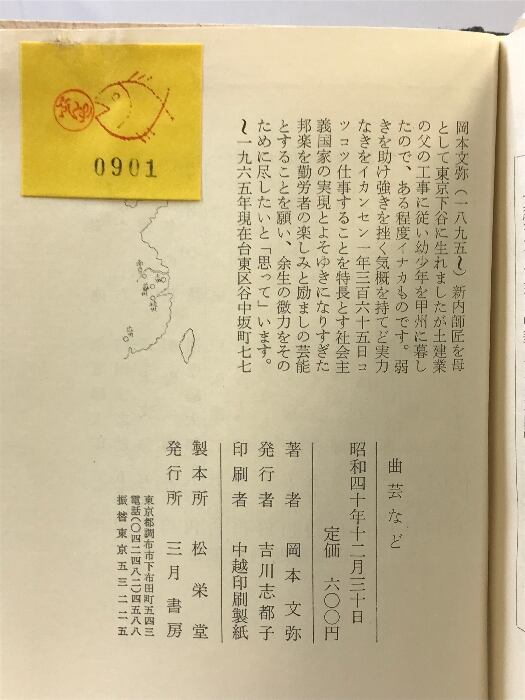 0901
岡本文弥（一八九五〜）新内師匠を母
として東京下谷に生れましたが土建業
の父の工事に従い幼少年を甲州に暮し
たので、ある程度イナカものです。弱
きを助け強きを挫く気概を持てど実力
なきをイカンセン一年三百六十五日コ
ツコツ仕事することを特長とす社会主
義国家の実現とよそゆきになりすぎた
邦楽を勤労者の楽しみと励ましの芸能
とすることを願い、余生の微力をその
ために尽したいと「思って」います。
〜一九六五年現在台東区谷中坂町七七
曲芸など
昭和四十年十二月三十日
定価　六〇〇円
著者　岡本文弥
発行者　吉川志都子
印刷者　中越印刷製紙
製本所　松栄堂
発行所　三月書房
東京都調布市下布田町五四三
電話（〇四二四八二）四五八八
振替東京五三二二五